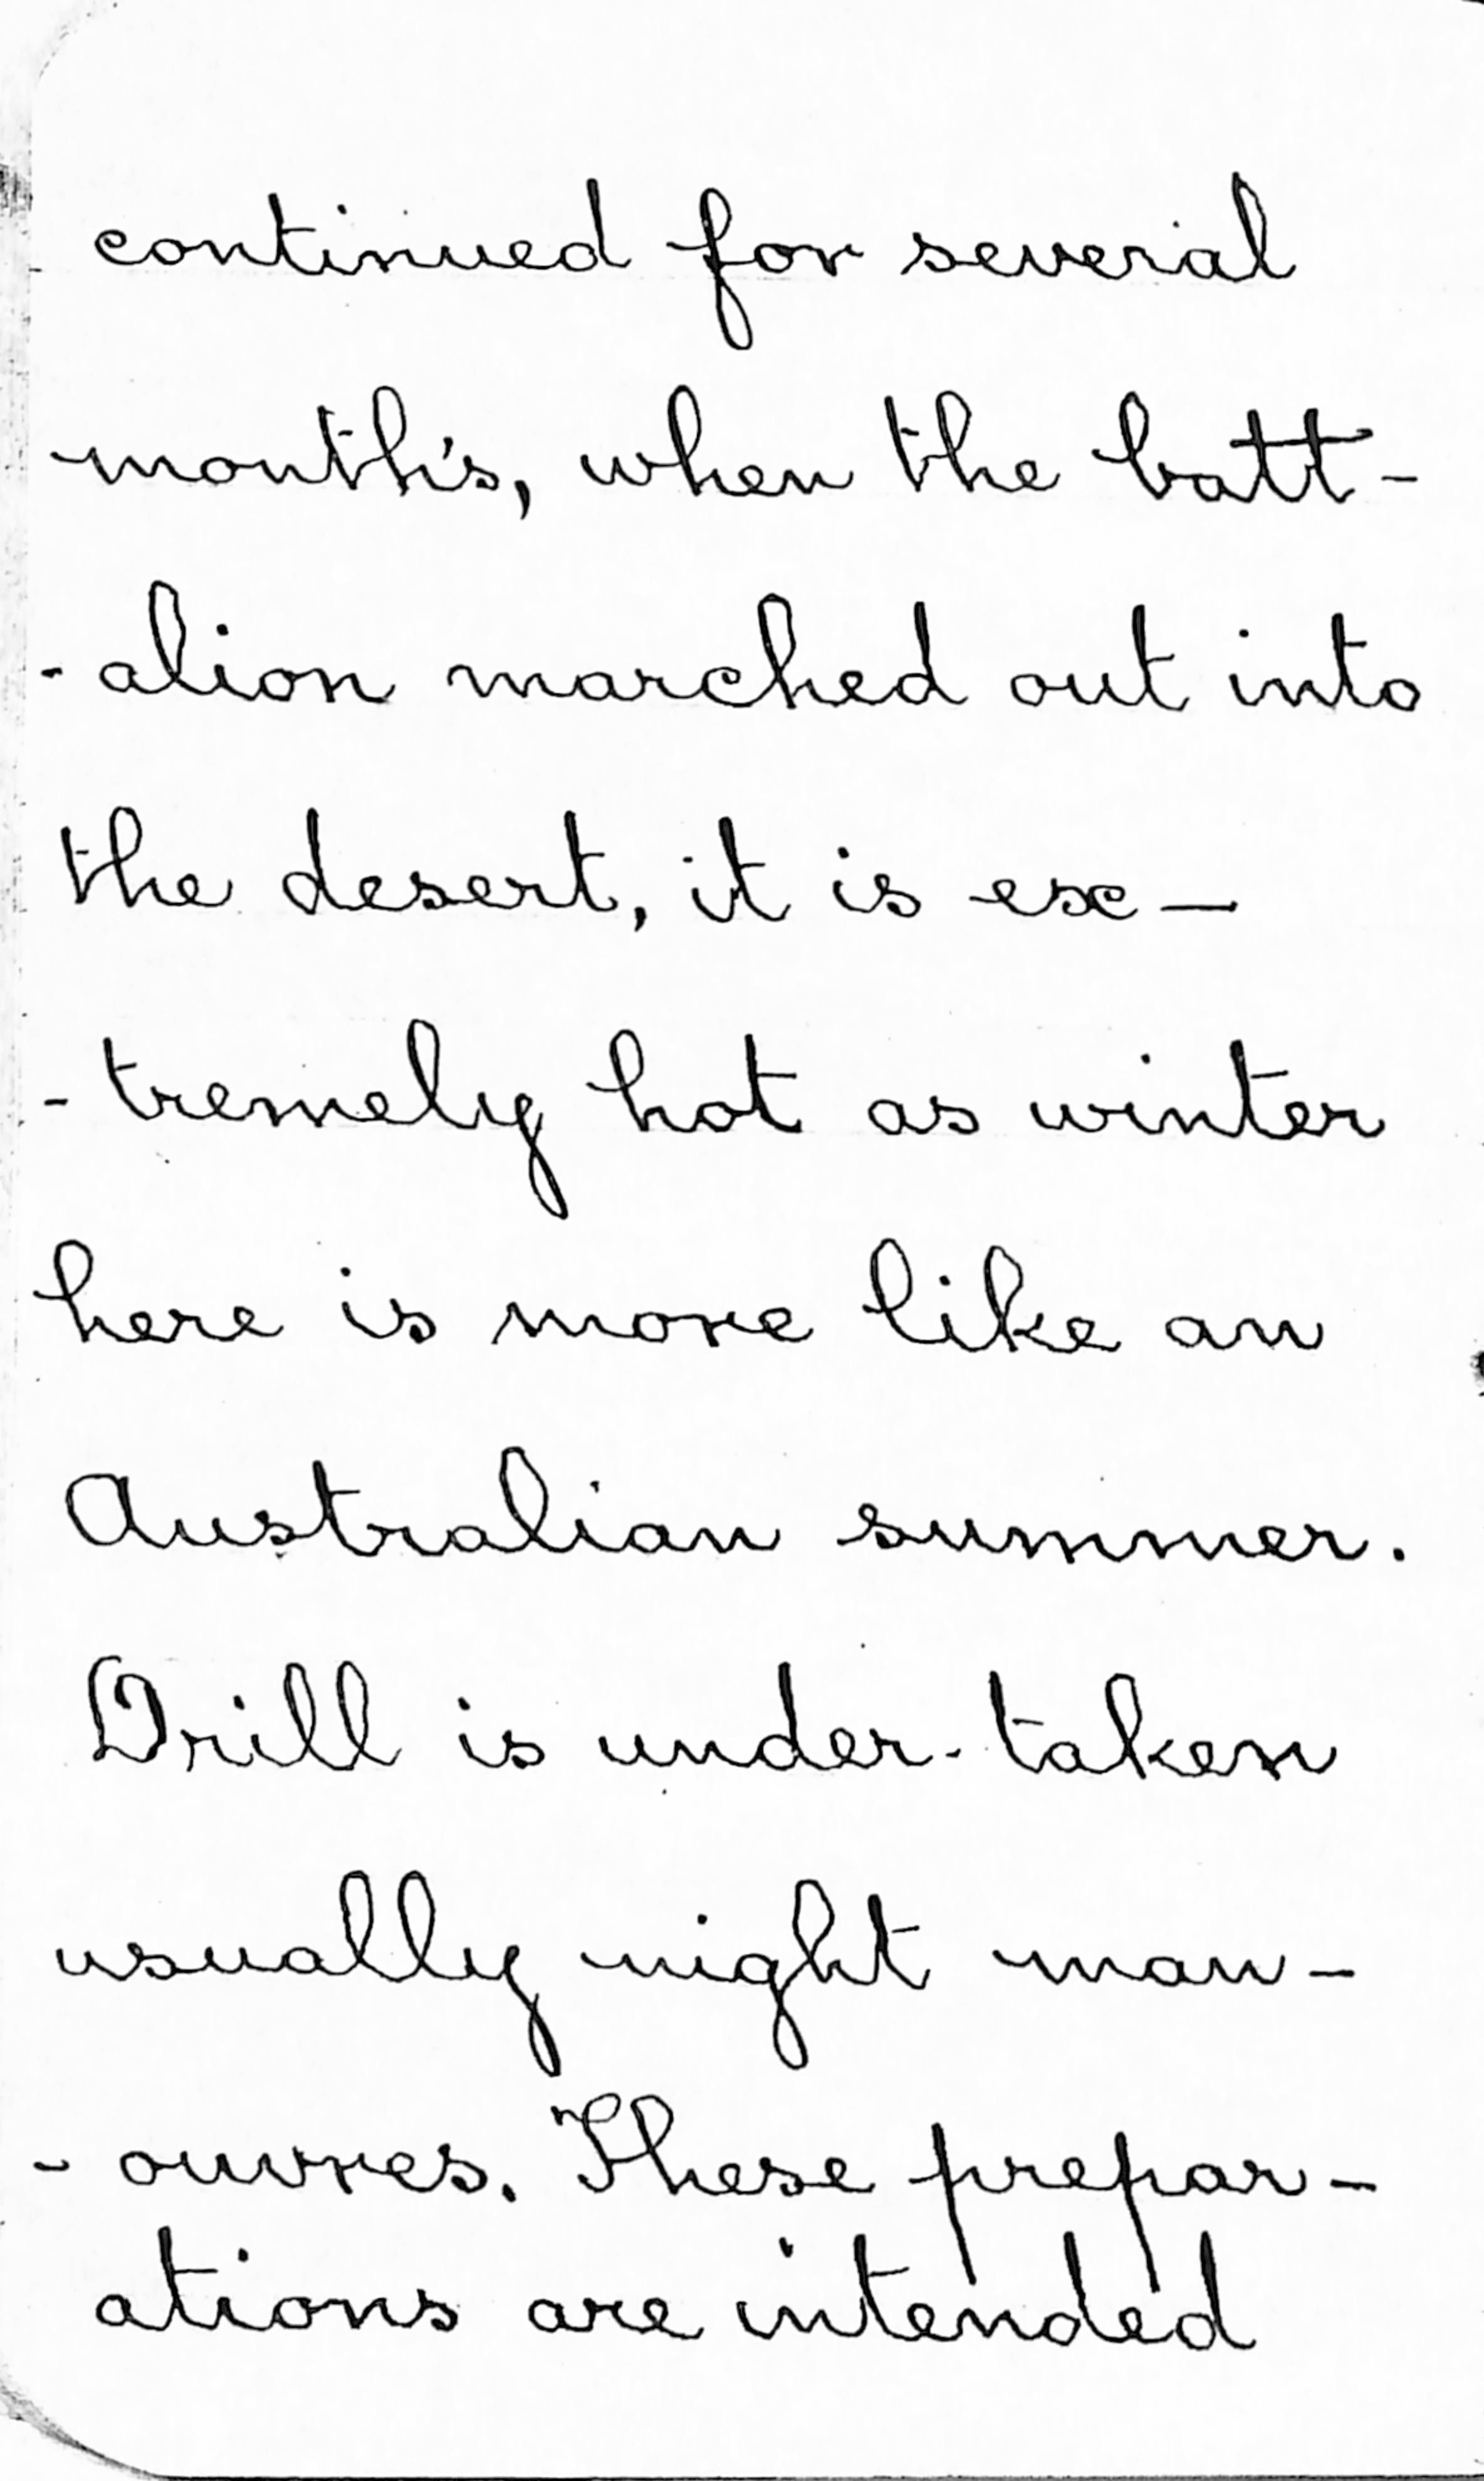 continued for several
month's, when the batt-
- alion marched out into
the desert, it is ex-
- tremely hot as winter
here is more like an
Australian summer.
Drill is under-taken
usually night man-
- ouvres. These prepar-
ations are intended